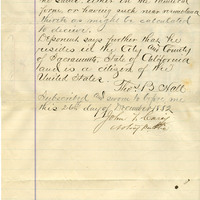 the same either in the natural
form or having such near resemblance
thereto as might be calculated
to deceive.
Deponent says further that he
resides in the City and County
of Sacramento, State of California
and is a citizen of the
United States.
Thos B Hall
Subscribed & sworn to before me
this 26th day of December 1882
John T. Carey
Notary Public